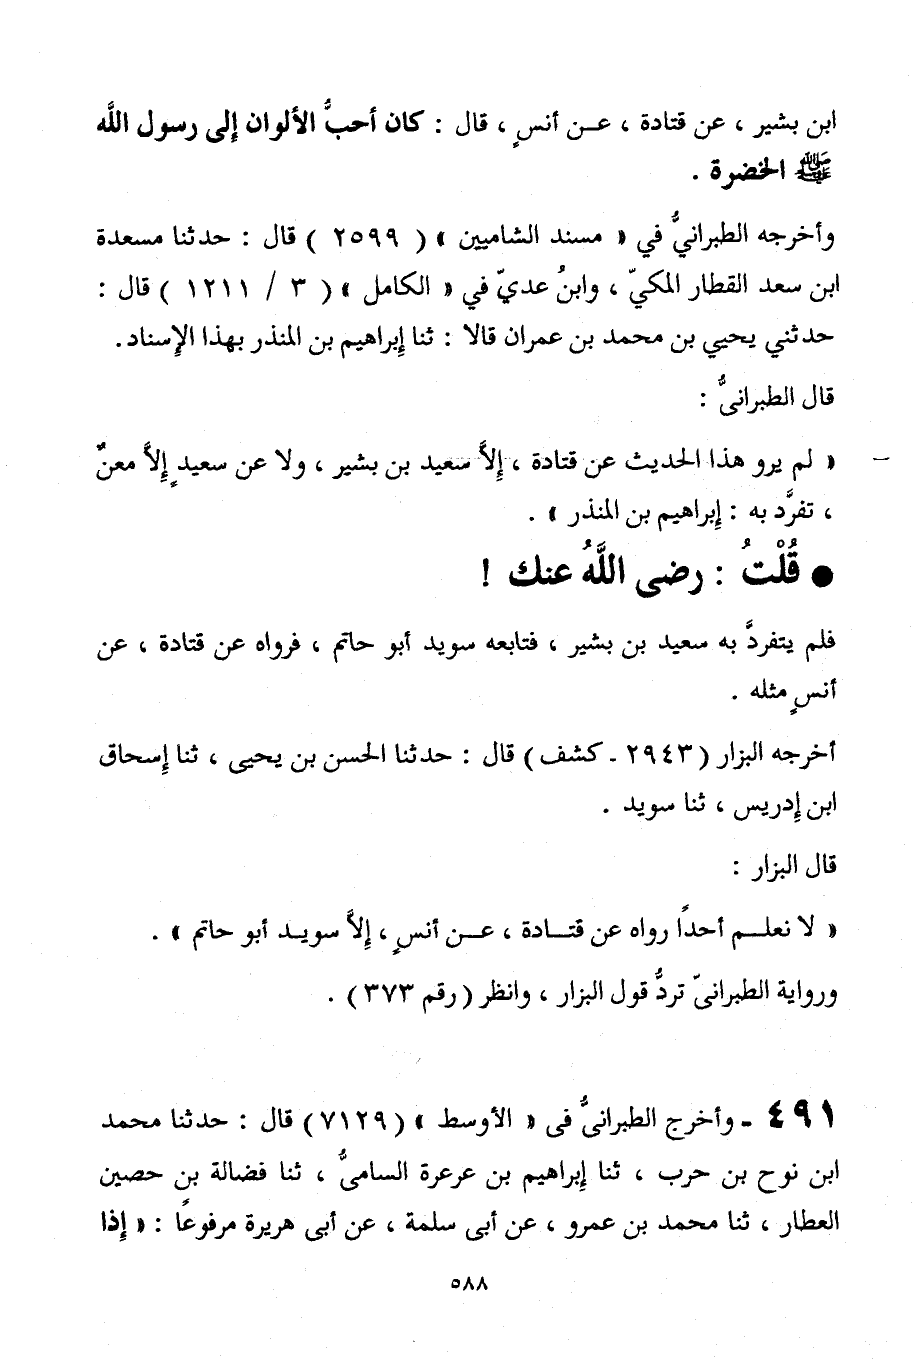 ابن بشير ، عن قتادة ، عـن أنسٍ ، قال : كان أحبُّ الألوان إلى رسول اللَّه
ﷺ الخضرة .
وأخرجه الطبرانيُّ في « مسند الشاميين » ( ٢٥٩٩ ) قال : حدثنا مسعدة
ابن سعد القطار المكيّ ، وابنُ عديّ في « الكامل » ( ٣ / ١٢١١ ) قال :
حدثني يحيي بن محمد بن عمران قالا : ثنا إبراهيم بن المنذر بهذا الإسناد.
قال الطبرانىُّ :
« لم يرو هذا الحديث عن قتادة ، إلاَّ سعيد بن بشير ، ولا عن سعيدٍ إلاَّ معنٌ
، تفرَّد به : إبراهيم بن المنذر » .
● قُلْتُ : رضى اللَّهُ عنك !
فلم يتفردَّ به سعيد بن بشير ، فتابعه سويد أبو حاتم ، فرواه عن قتادة ، عن
أنسٍ مثله .
أخرجه البزار ( ٢٩٤٣ ـ كشف ) قال : حدثنا الحسن بن يحيى ، ثنا إسحاق
ابن إدريس ، ثنا سويد .
قال البزار :
« لا نعلـم أحدًا رواه عن قتـادة ، عـن أنسٍ ، إلاَّ سويـد أبو حاتم » .
ورواية الطبرانىّ تردُّ قول البزار ، وانظر ( رقم ٣٧٣ ) .
٤٩١ ـ وأخرج الطبرانىُّ فى « الأوسط » ( ٧١٢٩ ) قال : حدثنا محمد
ابن نوح بن حرب ، ثنا إبراهيم بن عرعرة السامىُّ ، ثنا فضالة بن حصين
العطار ، ثنا محمد بن عمرو ، عن أبى سلمة ، عن أبى هريرة مرفوعًا : « إذا
٥٨٨